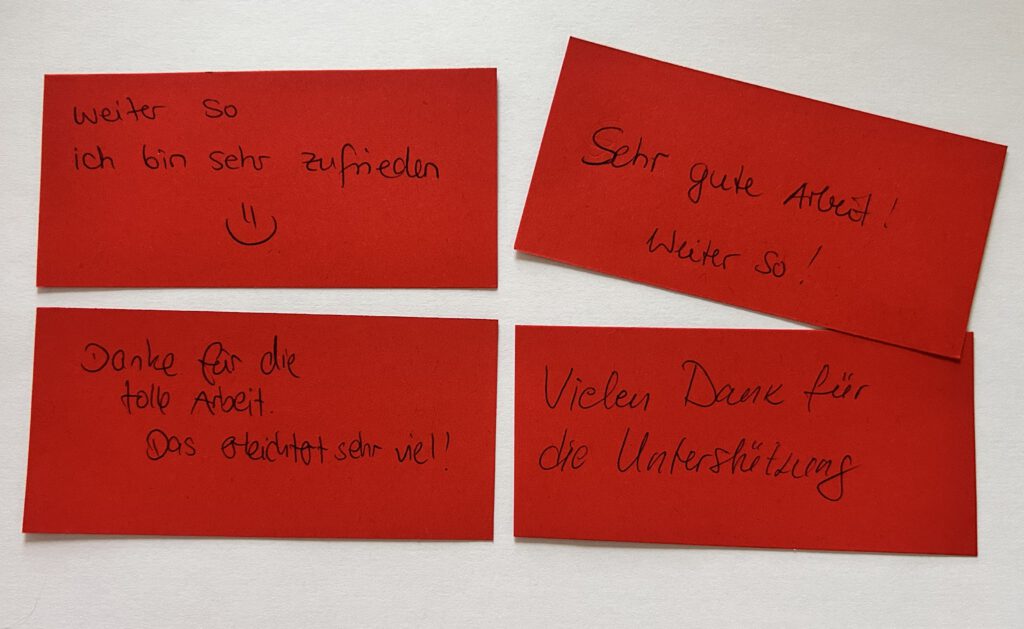 weiter so
ich bin sehr zufrieden
Sehr gute Arbeit!
Weiter so!
Danke für die
tolle Arbeit.
Das erleichtert sehr viel!
Vielen Dank für
die Unterstützung